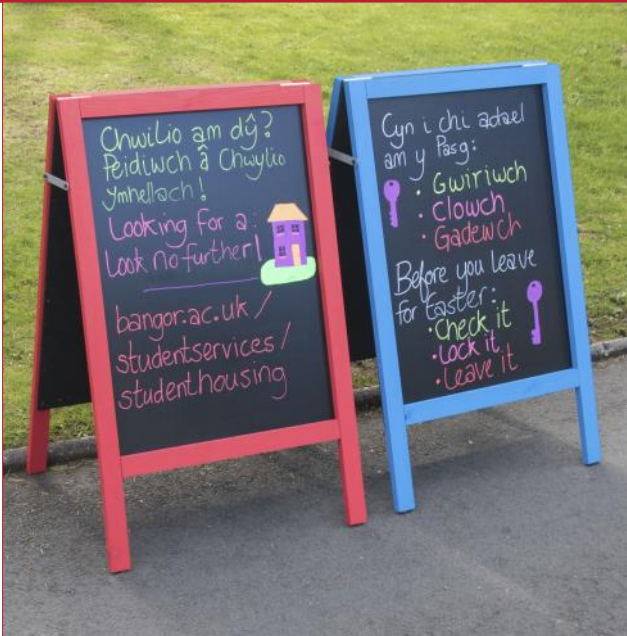 Chwilio am dŷ?
Peidiwch â Chwylio
Ymhellach!
Looking for a:
Look no further!
bangor.ac.uk/
studentservices/
studenthousing
Cyn i chi adael
am y Pasg:
• Gwiriwch
• Clowch
• Gadewch
Before you leave
for Easter:
• Check it
• Lock it
• Leave it